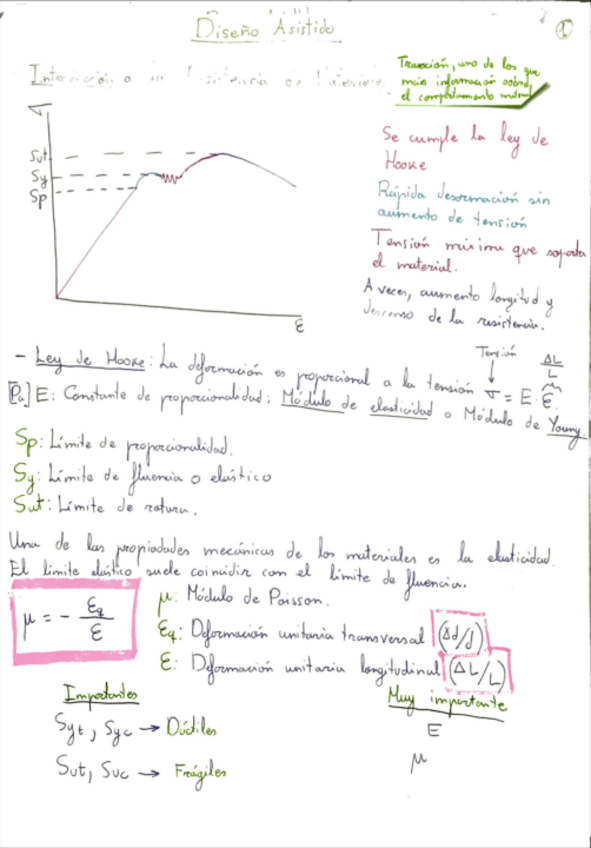 Diseño Asistido
1
Tracción, uno de los que
más información sobre
el comportamiento
Introducción a la Resistencia de Materiales
σ
Sut
Sy
Sp
ε
Se cumple la ley de
Hooke
Rápida deformación sin
aumento de tensión
Tensión máxima que soporta
el material.
A veces, aumento longitud y
descenso de la resistencia.
Tensión
ΔL
L
- Ley de Hooke: La deformación es proporcional a la tensión σ = E · ε.
[Pa] E: Constante de proporcionalidad: Módulo de elasticidad o Módulo de Young.
Sp: Límite de proporcionalidad.
Sy: Límite de fluencia o elástico
Sut: Límite de rotura.
Una de las propiedades mecánicas de los materiales es la elasticidad.
El límite elástico suele coincidir con el límite de fluencia.
μ = - εq / ε
μ: Módulo de Poisson.
εq: Deformación unitaria transversal (Δd/d)
ε: Deformación unitaria longitudinal (ΔL/L)
Importantes
Syt, Syc → Dúctiles
Sut, Suc → Frágiles
Muy importante
E
μ